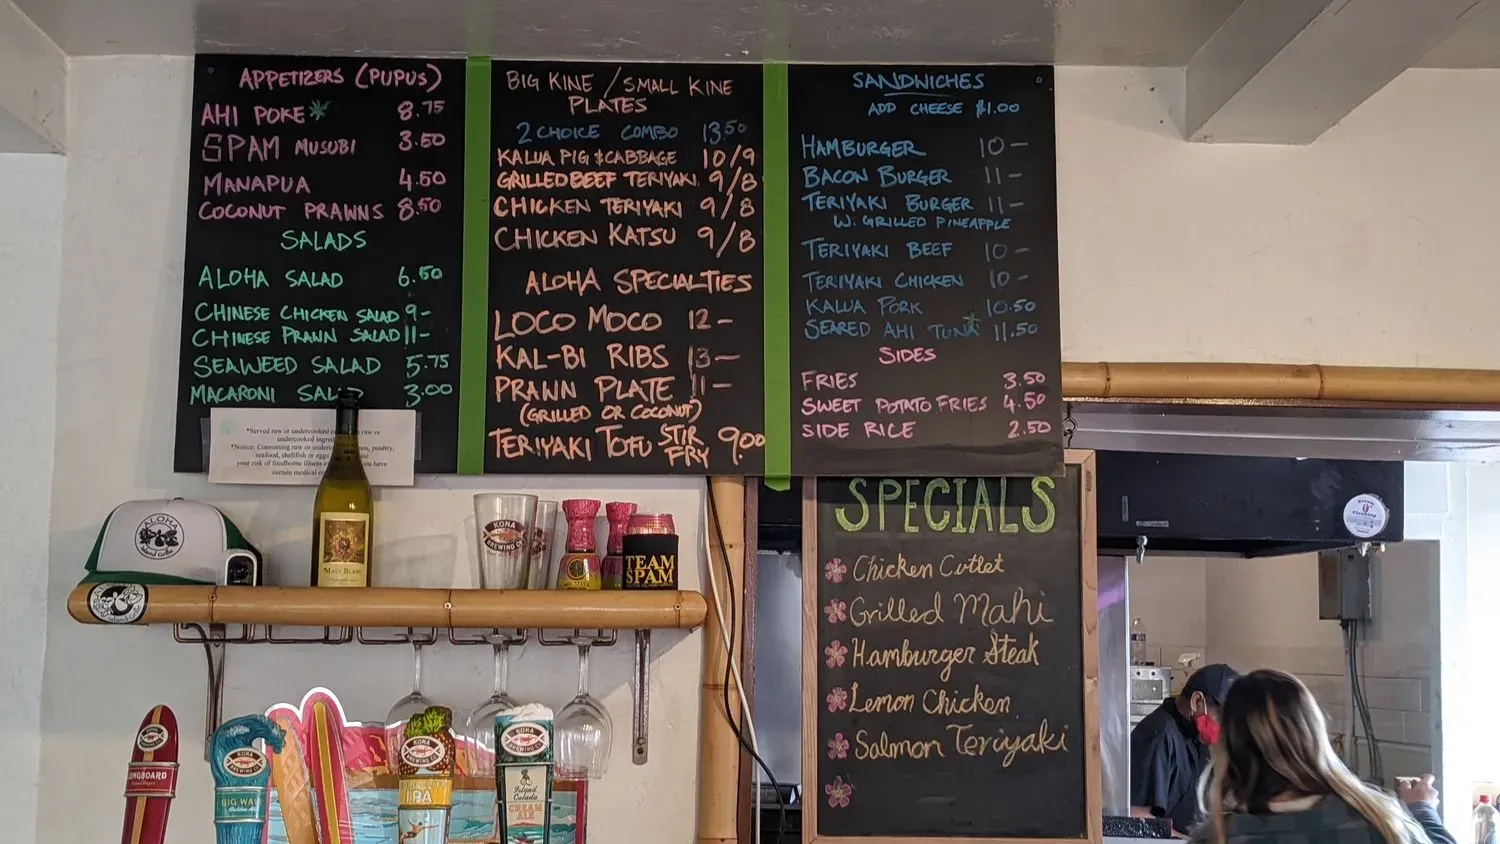 APPETIZERS (PUPUS)
AHI POKE* 8.75
SPAM MUSUBI 3.50
MANAPUA 4.50
COCONUT PRAWNS 8.50
SALADS
ALOHA SALAD 6.50
CHINESE CHICKEN SALAD 9-
CHINESE PRAWN SALAD 11-
SEAWEED SALAD 5.75
MACARONI 3.00
BIG KINE / SMALL KINE
PLATES
2 CHOICE COMBO 13.50
KALUA PIG & CABBAGE 10/9
GRILLED BEEF TERIYAKI 9/8
CHICKEN TERIYAKI 9/8
CHICKEN KATSU 9/8
ALOHA SPECIALTIES
LOCO MOCO 12-
KAL-BI RIBS 13-
PRAWN PLATE 11-
(GRILLED OR COCONUT)
TERIYAKI TOFU STIR FRY 9.00
SANDWICHES
ADD CHEESE $1.00
HAMBURGER 10-
BACON BURGER 11-
TERIYAKI BURGER 11-
W. GRILLED PINEAPPLE
TERIYAKI BEEF 10-
TERIYAKI CHICKEN 10-
KALUA PORK 10.50
SEARED AHI TUNA* 11.50
SIDES
FRIES 3.50
SWEET POTATO FRIES 4.50
SIDE RICE 2.50
*Served raw or undercooked raw or
undercooked
*Notice: Consuming raw or poultry,
seafood, shellfish or
your risk of foodborne you have
certain medical
SPECIALS
Chicken Cutlet
Grilled Mahi
Hamburger Steak
Lemon Chicken
Salmon Teriyaki
ALOHA
Island Grille
MAUI BLANC
KONA
BREWING CO
TEAM
SPAM
KONA
LONGBOARD
KONA
BREWING CO
BIG WAVE
KONA
BREWING CO
IPA
KONA
BREWING CO
Island Colada
CREAM
ALE